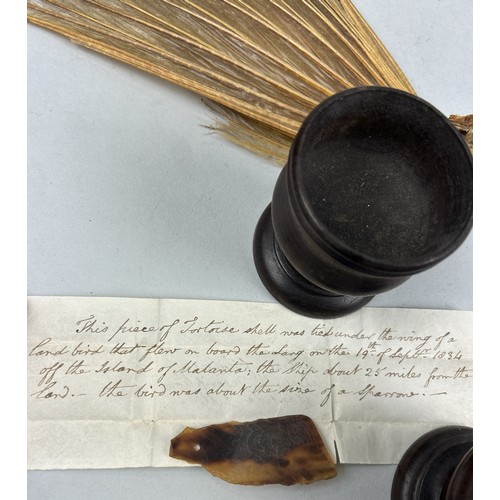 This piece of Tortoise shell was tied under the wing of a
land bird that flew on board the Lang on the 19th of Septr 1834
off the Island of Malanta; the Ship about 25 miles from the
land.— the bird was about the size of a Sparrow.—